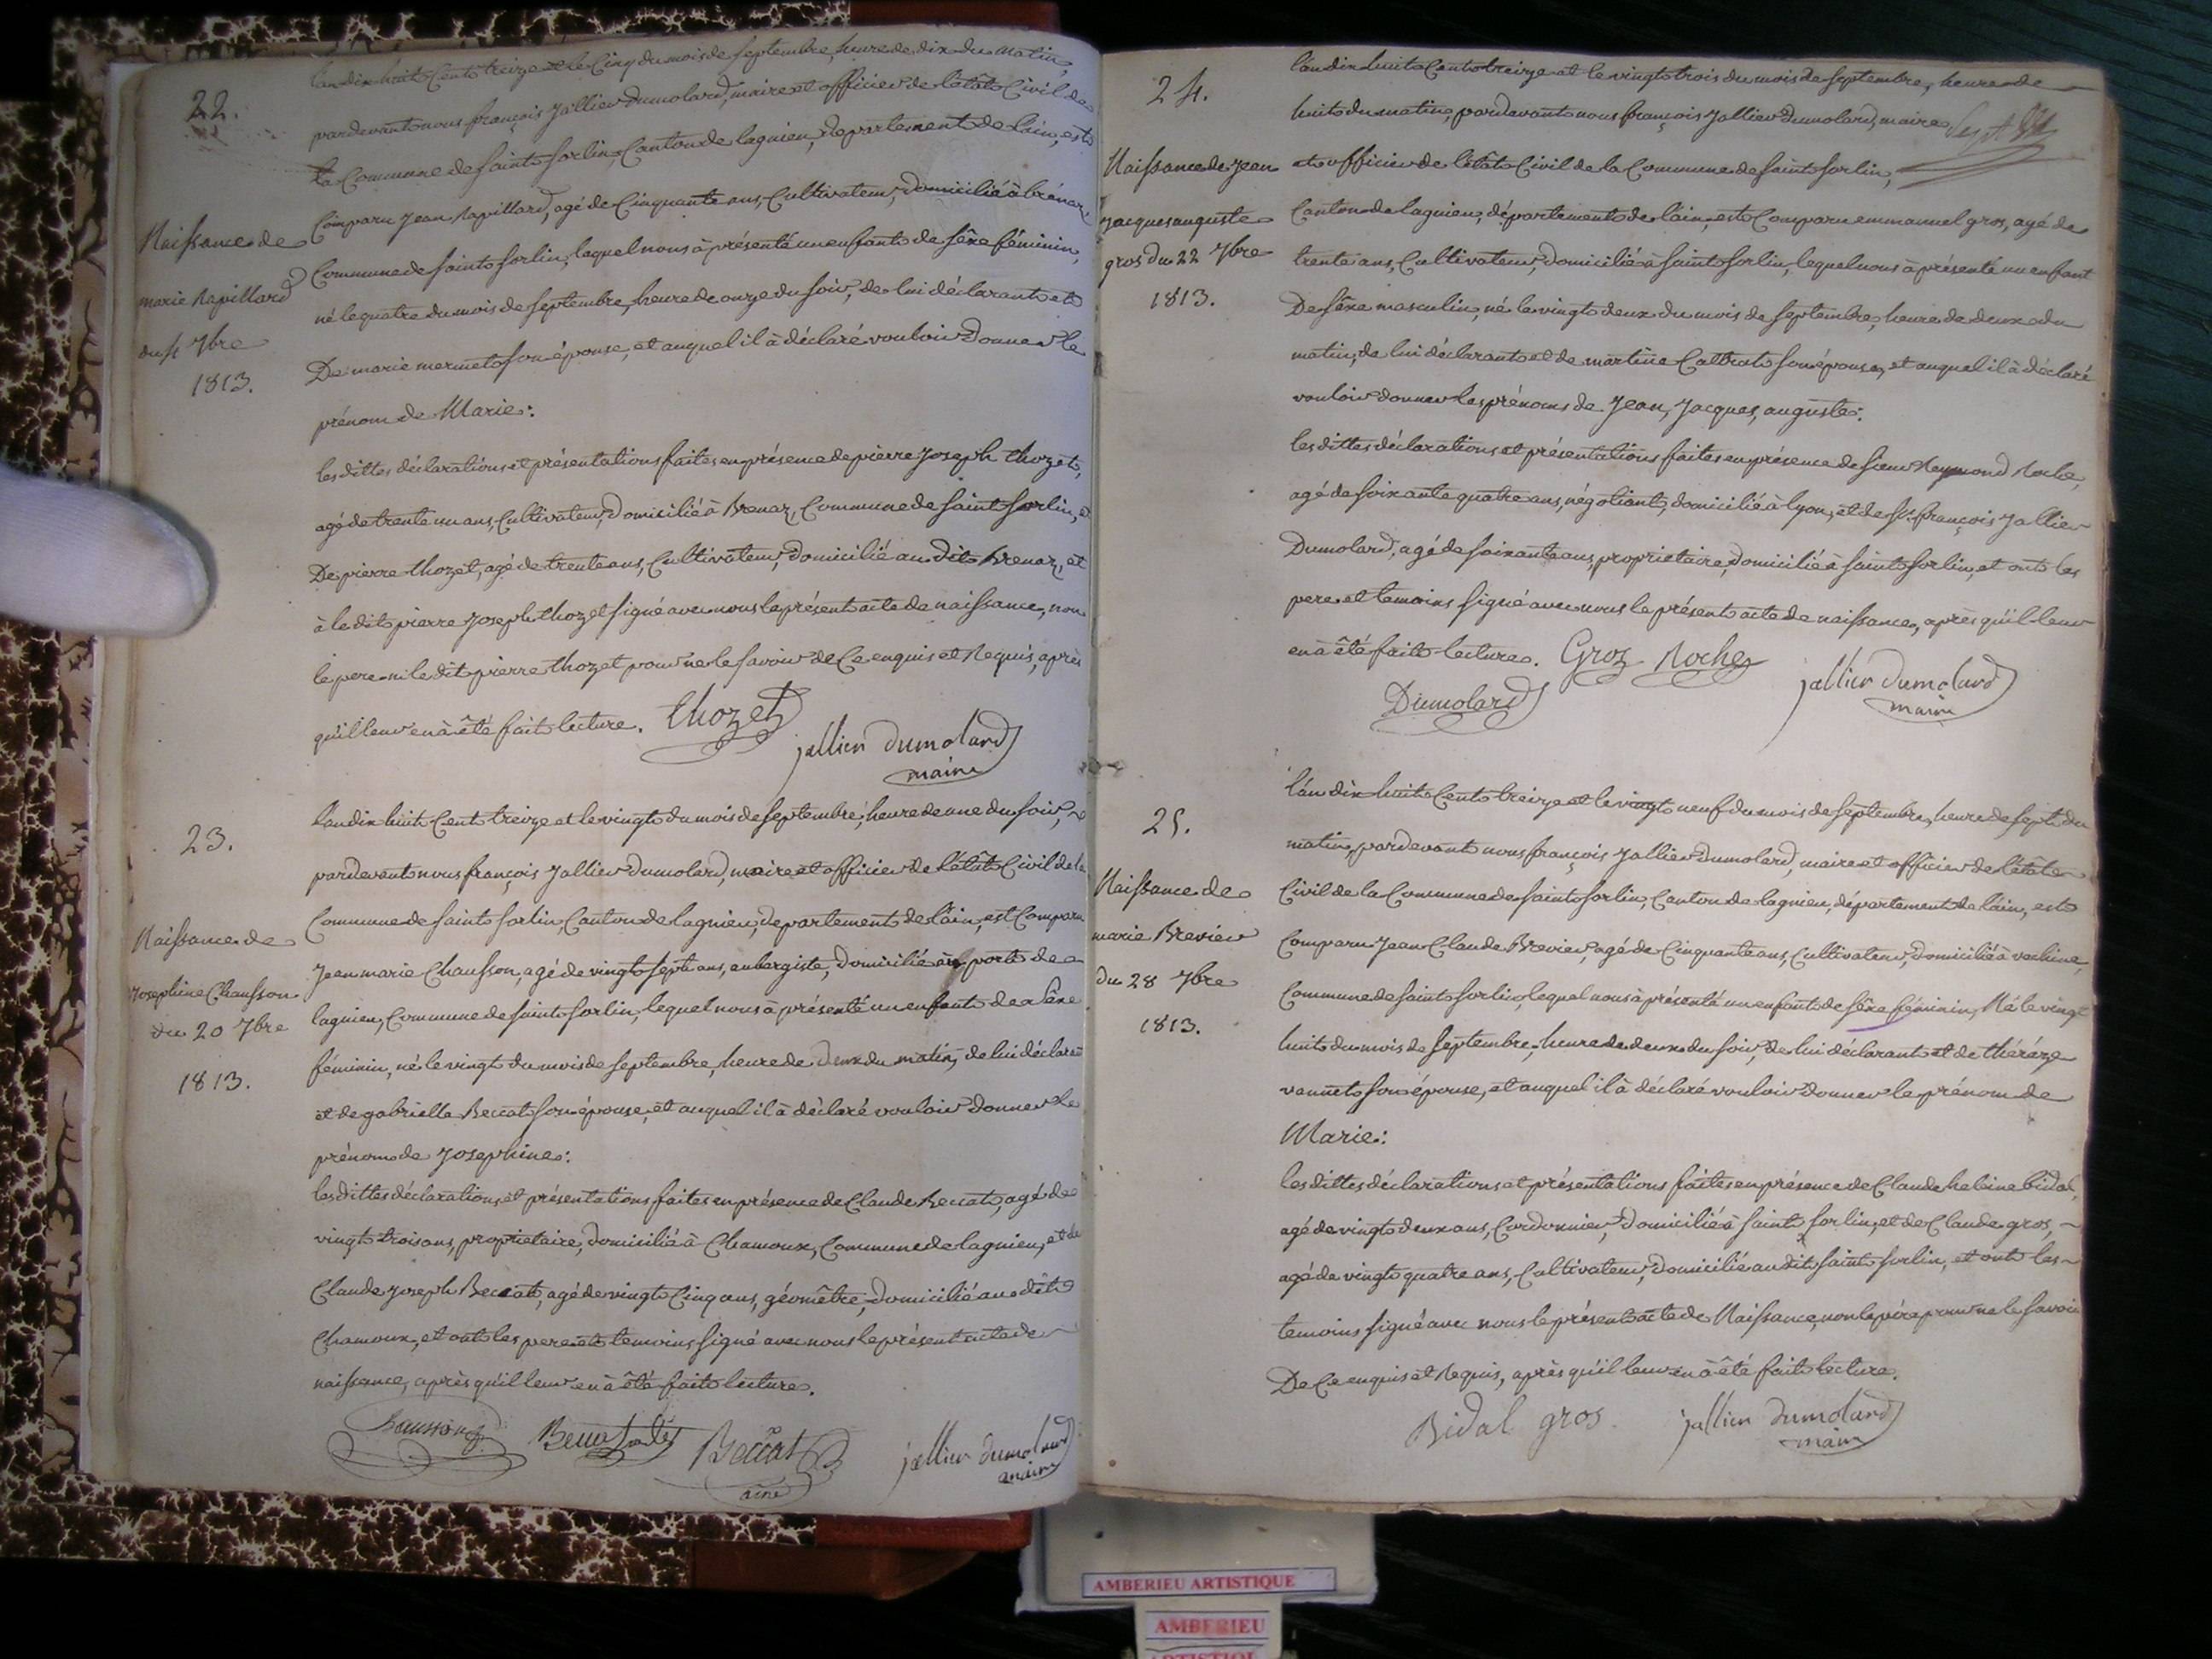 22.
Naissance de
marie Rapillard
du 4 7bre
1813.
lan dix huit Cent treize et le Cinq du mois de septembre, heure de dix du matin,
pardevant nous françois Jallier Dumolard, maire et officier de l'état Civil de
la Commune de saint sorlin, Canton de lagnieu, departement de lain, est
Comparu Jean Rapillard, agé de Cinquante ans, Cultivateur, domicilié à brénaz,
Commune de saint sorlin, laquel nous à présenté un enfant de séxe féminin,
né le quatre du mois de septembre, heure de onze du soir, de lui déclarant et
De marie mermet son épouse, et auquel il à déclaré vouloir Donner le
prénom de Marie:
les dittes déclarations et présentations faites en présence de pierre Joseph thozet,
agé de trente un ans, Cultivateur, domicilié à Brenaz, Commune de saint sorlin, et
De pierre thozet, agé de trente ans, Cultivateur, domicilié au dit brenaz, et
à le dit pierre Joseph thozet signé avec nous le présent acte de naissance, non
le pere ni le dit pierre thozet pour ne le savoir de Ce enquis et Requis, après
qu'il leur en à été fait lecture. thozet
jallier dumolard
maire
23.
Naissance de
Josephine Chausson
du 20 7bre
1813.
lan dix huit Cent treize et le vingt du mois de septembre, heure de une du soir,
pardevant nous françois Jallier Dumolard, maire et officier de l'état Civil de la
Commune de saint sorlin, Canton de lagnieu, departement de lain, est Comparu
Jean marie Chausson, agé de vingt sept ans, aubergiste, domicilié au port de
lagnieu, Commune de saint sorlin, lequel nous à présenté un enfant de séxe
féminin, né le vingt du mois de septembre, heure de deux du matin, de lui déclarant
et de gabrielle Beccat son épouse, et auquel il à déclaré vouloir Donner le
prénom de Josephine:
les dittes déclarations et présentations faites en présence de Claude Beccat, agé de
vingt trois ans, propriétaire, domicilié à Chamoux, Commune de lagnieu, et de
Claude Joseph Beccat, agé de vingt Cinq ans, géomètre, domicilié au dit
Chamoux, et ont les pere et temoins signé avec nous le présent acte de
naissance, après qu'il leur en à été fait lecture.
Beccat
ainé
jallier dumolard
maire
24.
Naissance de Jean
Jacques auguste
gros du 22 7bre
1813.
lan dix huit Cent treize et le vingt trois du mois de septembre, heure de
huit du matin, pardevant nous françois Jallier Dumolard, maire
et officier de l'état Civil de la Commune de saint sorlin,
Canton de lagnieu, département de lain, est Comparu emmanuel gros, agé de
trente ans, Cultivateur, domicilié à saint sorlin, lequel nous à présenté un enfant
De séxe masculin, né le vingt deux du mois de septembre, heure de deux du
matin, de lui déclarant et de martine son épouse, et auquel il à déclaré
vouloir donner les prénoms de Jean, Jacques, auguste:
les dittes déclarations et présentations faites en présence de sieur Reymond Roche,
agé de soixante quatre ans, négotiant, domicilié à lyon, et de sr. françois Jallier
Dumolard, agé de soixante ans, proprietaire, domicilié à saint sorlin, et ont les
pere et temoins signé avec nous le présent acte de naissance, après qu'il leur
en à été fait lecture. Groz Roche
Dumolard
jallier dumolard
maire
25.
Naissance de
marie Brevier
du 28 7bre
1813.
l'an dix huit Cent treize et le vingt neuf du mois de septembre, heure de sept du
matin, pardevant nous françois Jallier Dumolard, maire et officier de l'état
Civil de la Commune de saint sorlin, Canton de lagnieu, département de lain, est
Comparu Jean Claude Brevier, agé de Cinquante ans, Cultivateur, domicilié à
Commune de saint sorlin, lequel nous à présenté un enfant de séxe féminin, Né le vingt
huit du mois de septembre, heure de deux du soir, de lui déclarant et de thérèze
vannet son épouse, et auquel il à déclaré vouloir donner le prénom de
Marie:
les dittes déclarations et présentations faites en présence de Claude helaine bidal,
agé de vingt deux ans, Cordonnier, domicilié à saint sorlin, et de Claude gros,
agé de vingt quatre ans, Cultivateur, domicilié au dit saint sorlin, et ont les
temoins signé avec nous le présent acte de Naissance, non le père pour ne le savoir
De Ce enquis et Requis, après qu'il leur en à été fait lecture.
Bidal gros
jallier dumolard
maire
AMBERIEU ARTISTIQUE
AMBERIEU
ARTISTIQUE